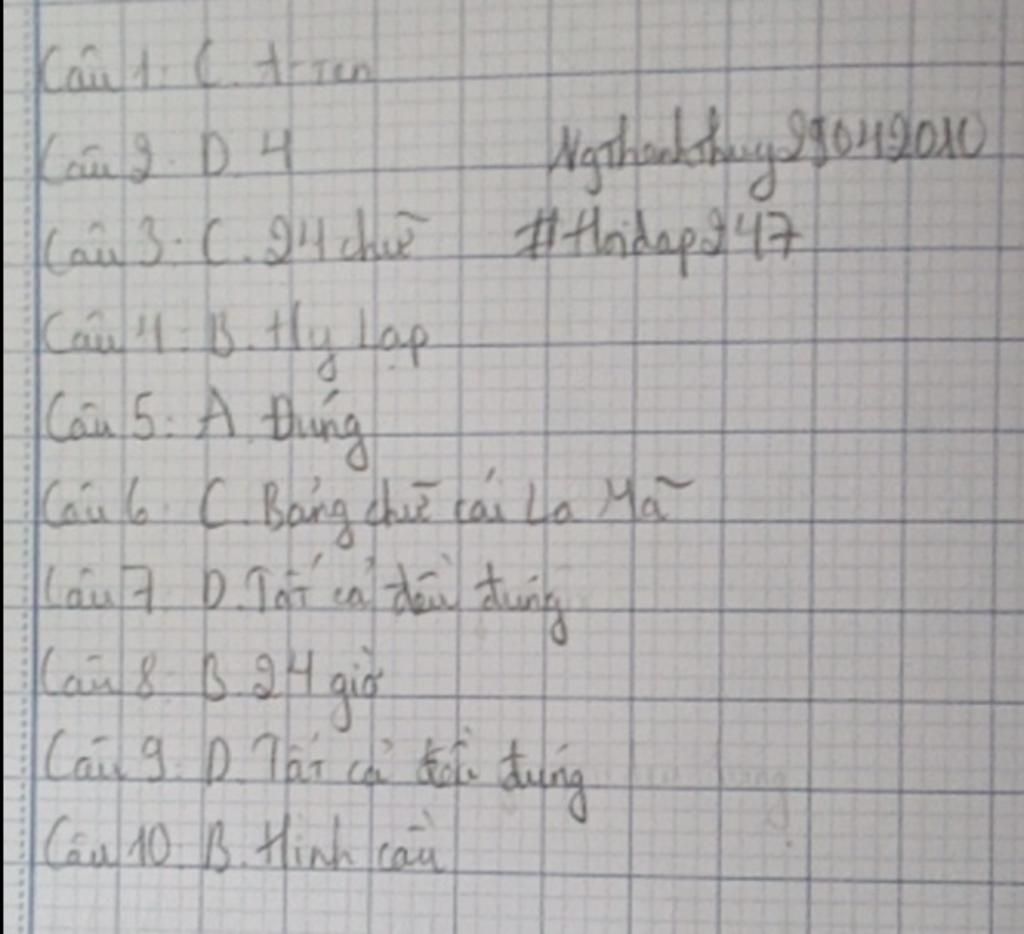 Câu 1. C. A-Ten
Câu 2. D. 4 Ngthanhthuy29042010
Câu 3. C. 24 chữ #Hoidap247
Câu 4. B. Hy Lạp
Câu 5. A. Đúng
Câu 6. C. Bảng chữ cái La Mã
Câu 7. D. Tất cả đều đúng
Câu 8. B. 24 giờ
Câu 9. D. Tất cả đều đúng
Câu 10. B. Hình cầu